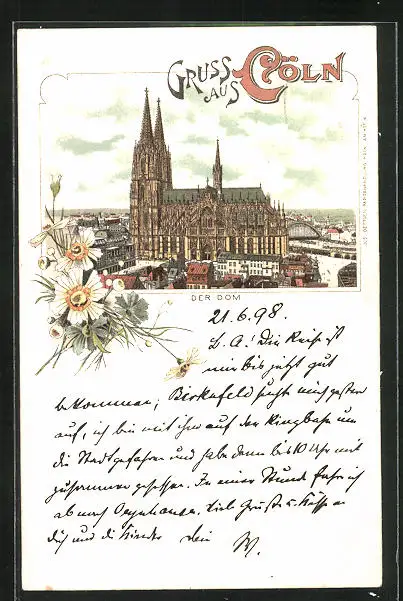 GRUSS
AUS
CÖLN
DER DOM
21.6.98.
L. A.! Die Reise ist
mir bis jetzt gut
bekommen; Birkenfeld suchte mich gestern
auf, ich bin mit ihm auf der Ringbahn um
die Stadt gefahren und habe dann bis 10 Uhr mit
zusammen gesessen. In einer Stunde fahre ich
ab nach Oeynhausen. Viele Grüße u. Küsse an
Dich und die Kinder Dein W.